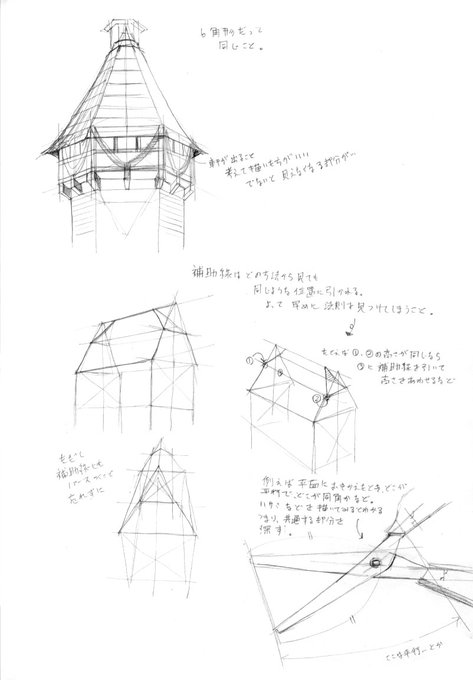 6角形だって
同じこと。
軒が出ること
考えて描いた方がいい
でないと見えなくなる部分が…
補助線はどの方法から見ても
同じような位置に引かれる。
よって早めに法則を見つけてしまうこと。
たとえば①、②の高さが同じなら
③に補助線を引いて
高さをあわせるなど
① ③ ②
ただし
補助線にも
パースがつく
忘れずに
例えば平面におきかえたとき、どこが
平行で、どこが同角かなど。
ハサミなどを描いてみるとわかる
つまり、共通する部分を
探す。
ここは平行…とか